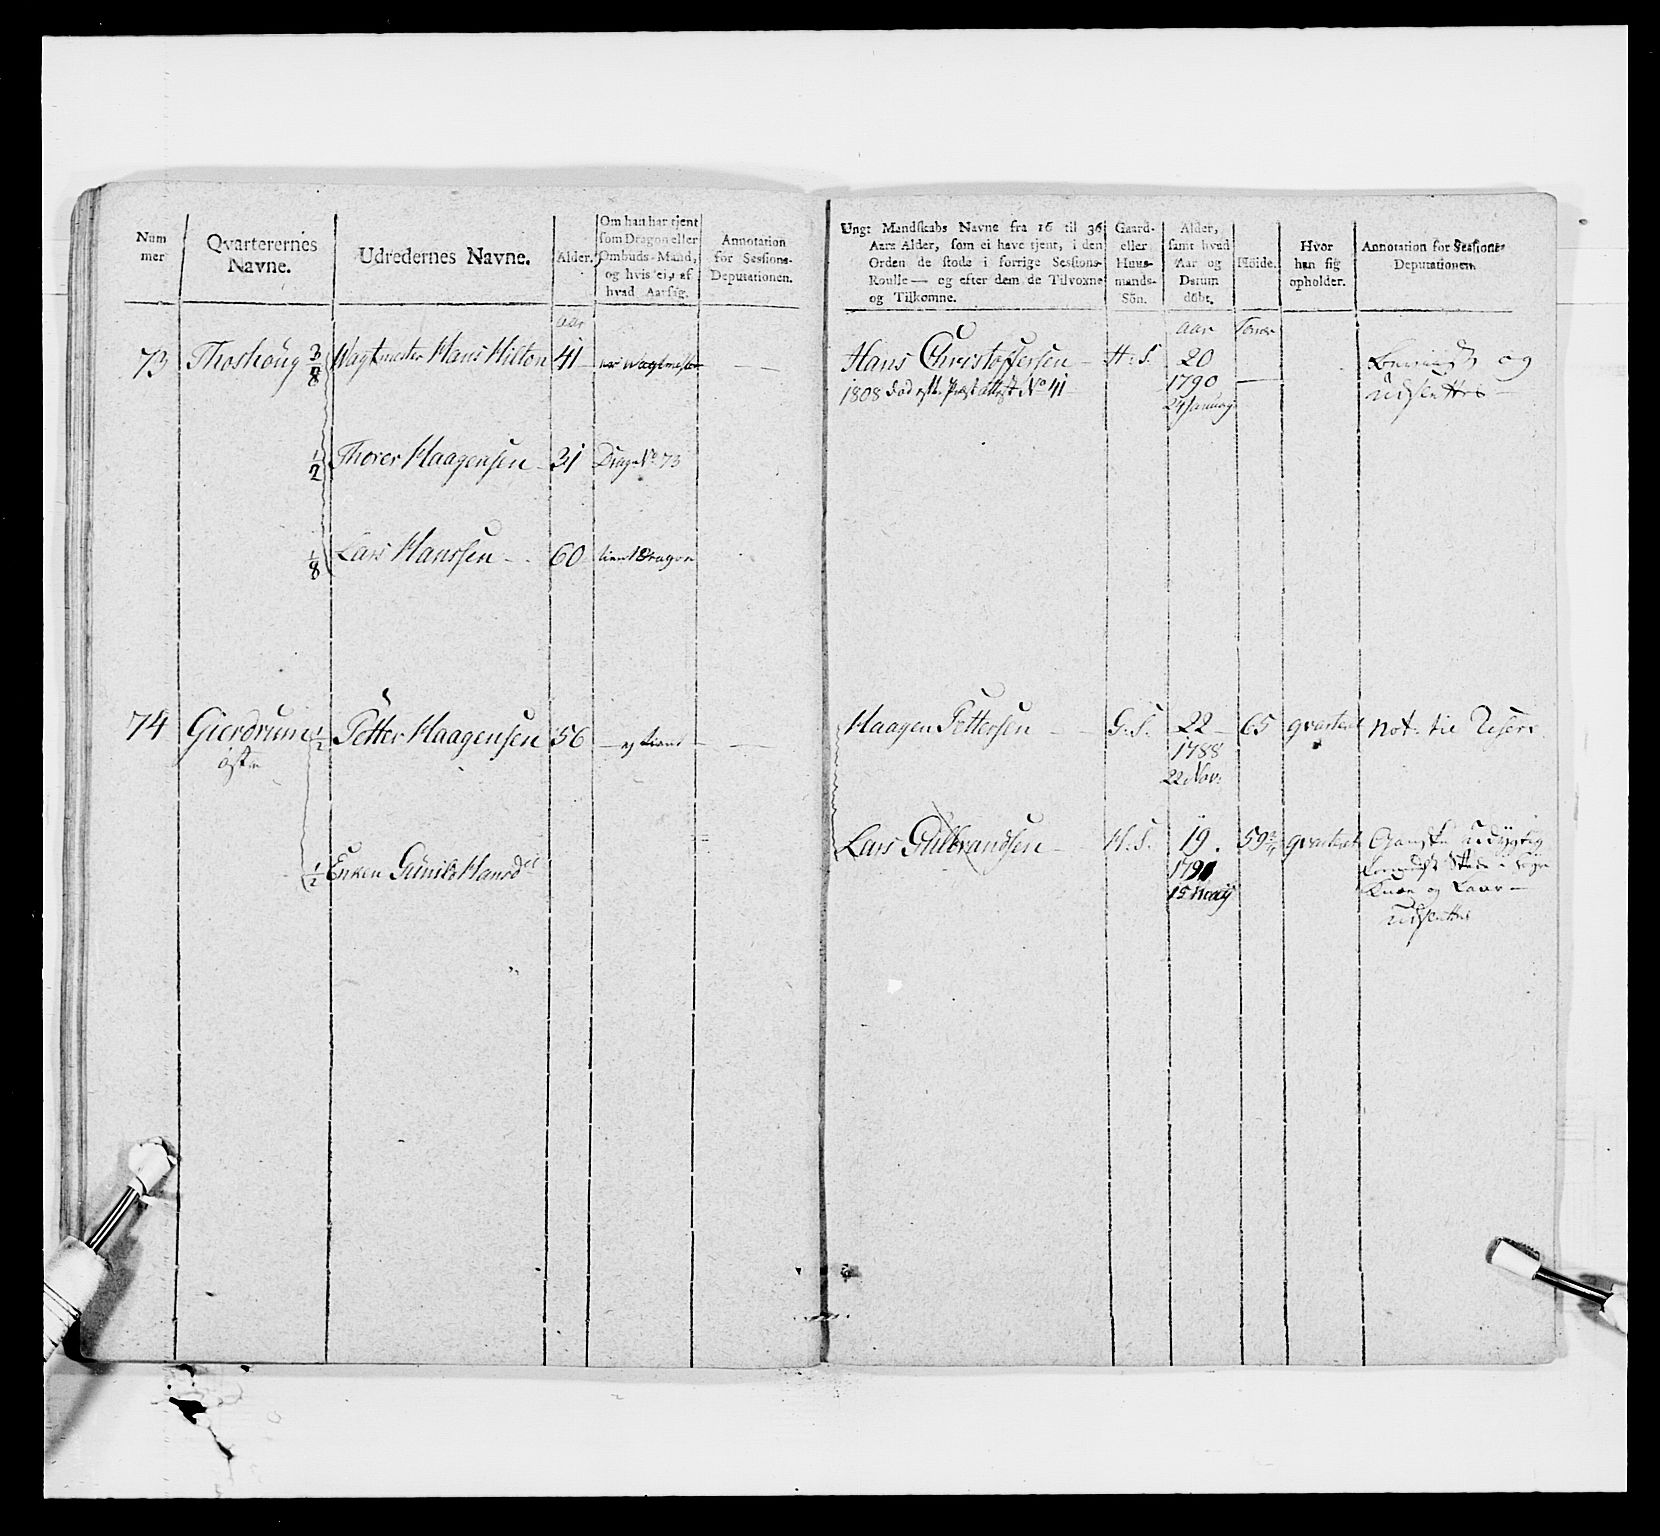 Num
mer
Qvarterernes
Navne.
Udredernes Navne.
Alder.
Om han har tjent
som Dragon eller
Ombuds-Mand,
og hvis ei, af
hvad Aarsag.
Annotation
for Sessions-
Deputationen.
Aar
73 Thoshoug 3/8 Wagtmester Hans Hilton 41 — Wagtmester —
1/2 Thorer Haagensen 31 Drag. No. 73
1/8 Lars Hanssen 60 tient Dragon
74 Gierdrum 1/2 Petter Haagensen 56 — ej tient — —
østre
1/2 Enken Gunild Hansd.
Ungt Mandskabs Navne fra 16 til 36
Aars Alder, som ei have tjent, i den
Orden de stode i forrige Sessions-
Roulle — og efter dem de Tilvoxne
og Tilkomne.
Gaard-
eller
Huus-
mands-
Sön.
Alder,
samt hvad
Aar og
Datum
döbt.
Höide.
Hvor
han sig
opholder.
Annotation for Sessions-
Deputationen.
Aar Tomer
Hans Christoffersen — H: S. 20 og
1808 død eft. Præst attest No 41 1790 — udslettes —
24 Januar
Haagen Pettersen — G: S. 22 — 65 qvarteret Not: til Reserv
1788
22 Nov:
Lars Gulbrandsen — H: S. 19. 59 3/4 qvarteret Ganske udygtig
1791
15 May og Laar —
udslettes